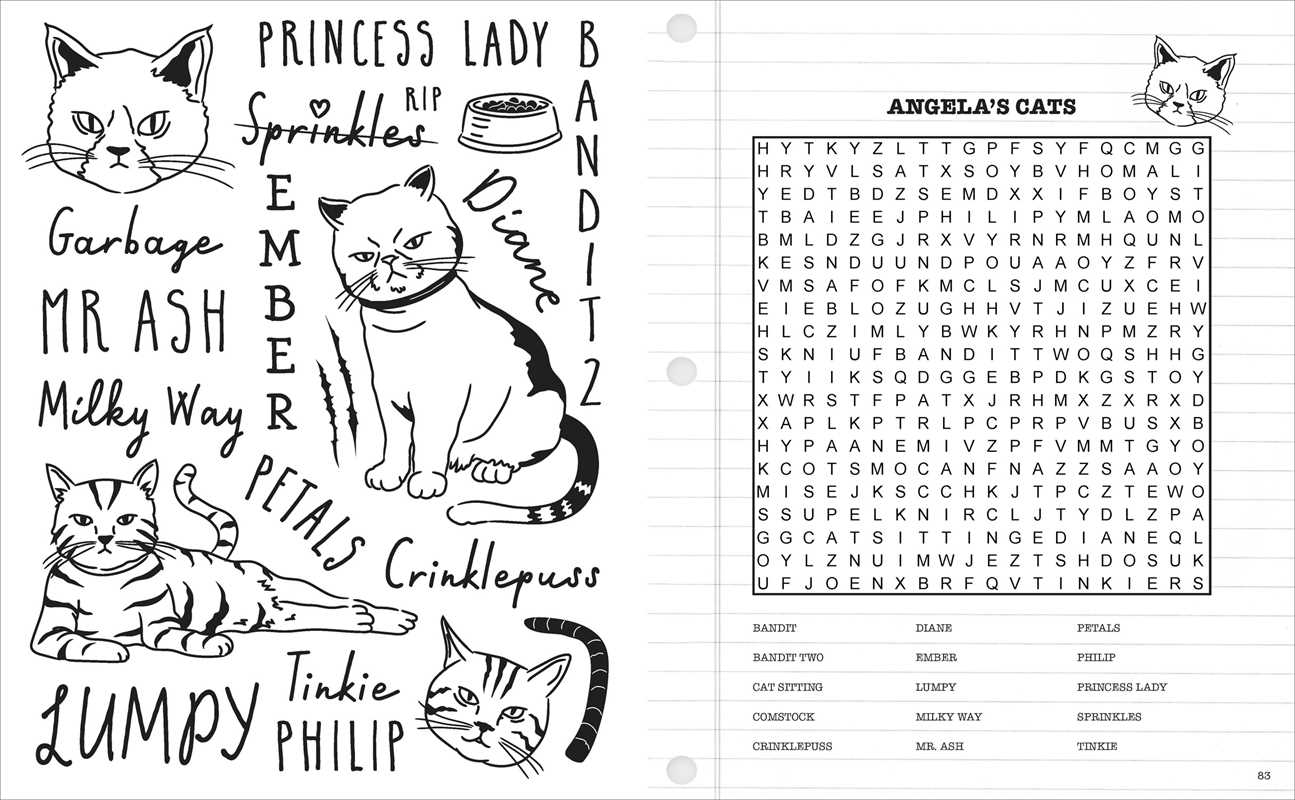 PRINCESS LADY
BANDIT 2
Sprinkles
RIP
EMBER
Diane
Garbage
MR ASH
Milky Way
PETALS
Crinklepuss
Tinkie
LUMPY
PHILIP
ANGELA'S CATS
H Y T K Y Z L T T G P F S Y F Q C M G G
H R Y V L S A T X S O Y B V H O M A L I
Y E D T B D Z S E M D X X I F B O Y S T
T B A I E E J P H I L I P Y M L A O M O
B M L D Z G J R X V Y R N R M H Q U N L
K E S N D U U N D P O U A A O Y Z F R V
V M S A F O F K M C L S J M C U X C E I
E I E B L O Z U G H H V T J I Z U E H W
H L C Z I M L Y B W K Y R H N P M Z R Y
S K N I U F B A N D I T T W O Q S H H G
T Y I I K S Q D G G E B P D K G S T O Y
X W R S T F P A T X J R H M X Z X R X D
X A P L K P T R L P C P R P V B U S X B
H Y P A A N E M I V Z P F V M M T G Y O
K C O T S M O C A N F N A Z Z S A A O Y
M I S E J K S C C H K J T P C Z T E W O
S S U P E L K N I R C L J T Y D L Z P A
G G C A T S I T T I N G E D I A N E Q L
O Y L Z N U I M W J E Z T S H D O S U K
U F J O E N X B R F Q V T I N K I E R S
BANDIT DIANE PETALS
BANDIT TWO EMBER PHILIP
CAT SITTING LUMPY PRINCESS LADY
COMSTOCK MILKY WAY SPRINKLES
CRINKLEPUSS MR. ASH TINKIE
83